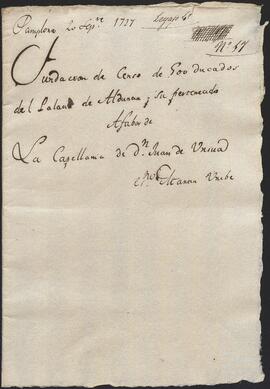 Pamplona 20 Sepre 1727 Legajo 4º
Nº 57
Fundacion de Censo de 600 Ducados
del Palacio de Aldunza, y su pertenecido
Afabor de
La Capellania de Dn Juan de Ursua